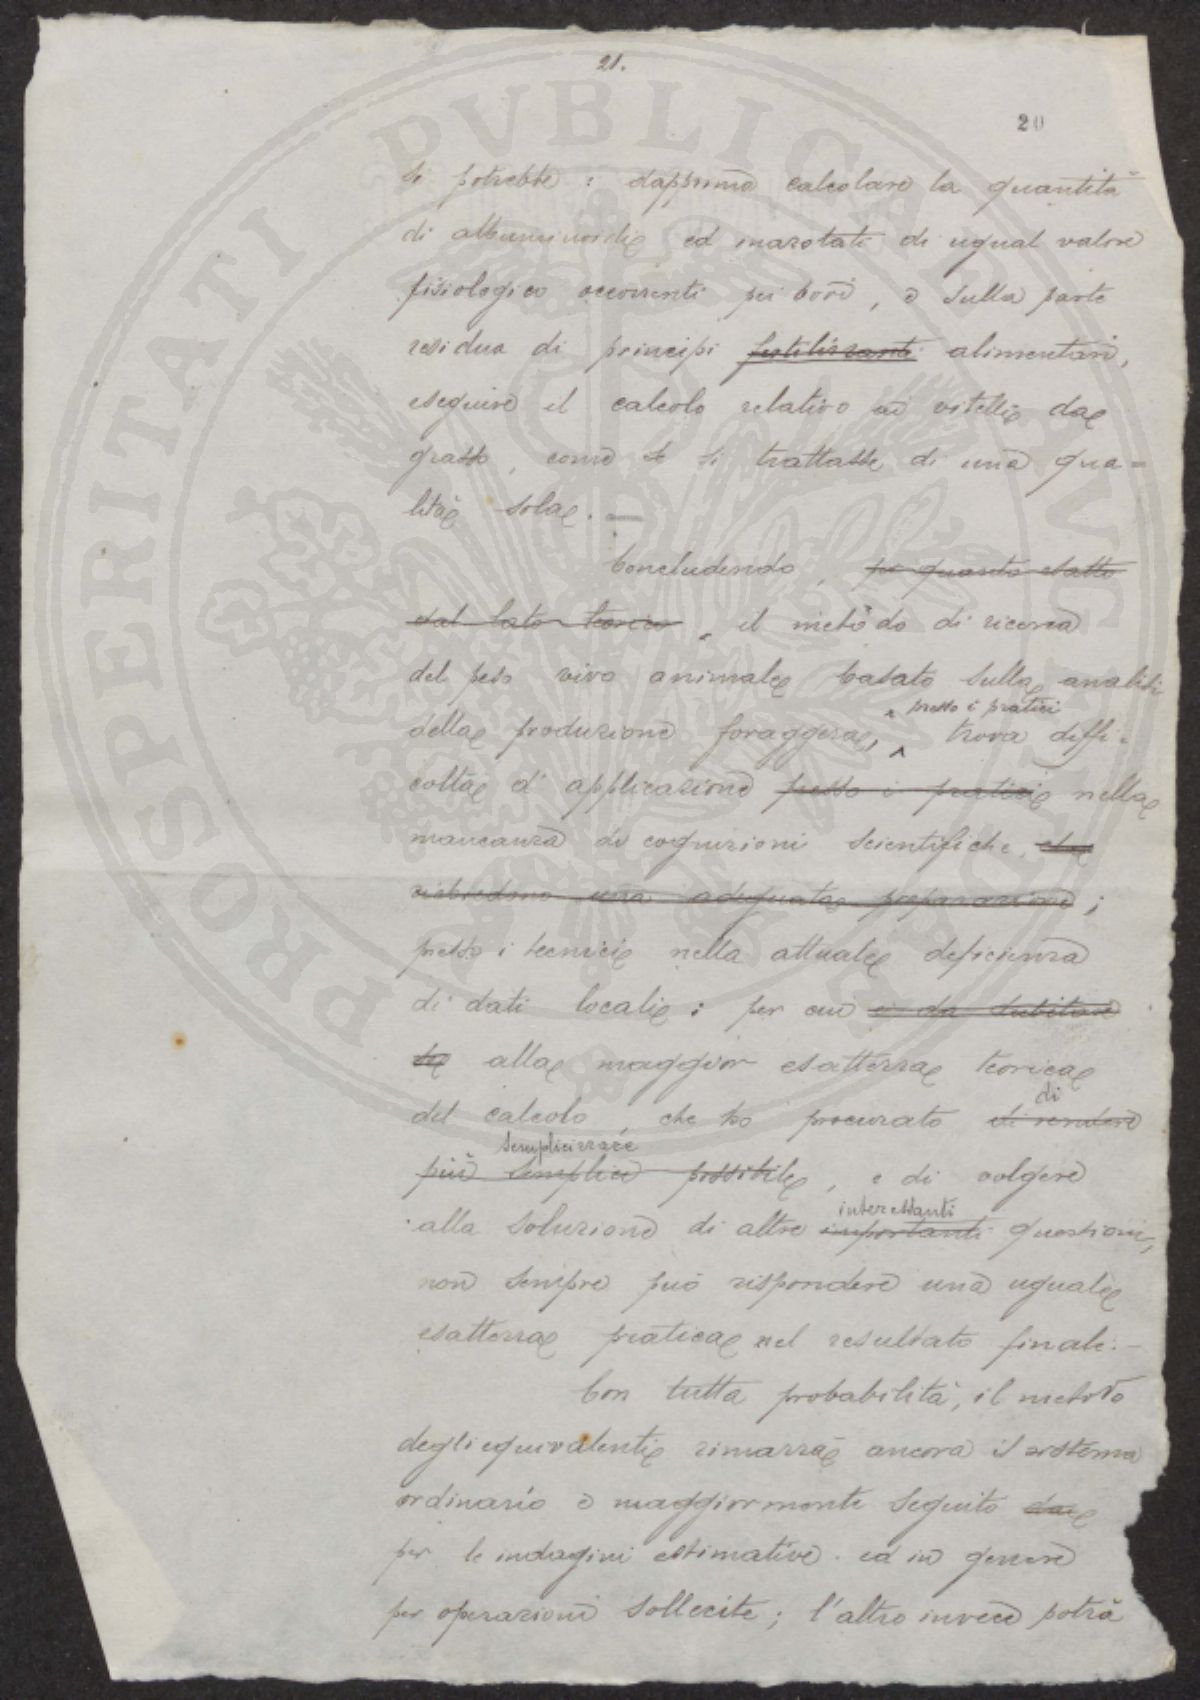 21.
20
si potrebbe : dapprima calcolare la quantità
di albuminoidi ed inazotati di ugual valore
fisiologico occorrenti pei bovi, e sulla parte
residua di principi fertilizzanti alimentari,
eseguire il calcolo relativo ai vitelli da
grasso, come se si trattasse di una qua=
lità sola. —
Concludendo, per quanto esatto
dal lato teorico, il metodo di ricerca
del peso vivo animale basato sulla analisi
presso i pratici
della produzione foraggera, trova diffi-
coltà d'applicazione presso i pratici nella
mancanza di cognizioni scientifiche, che
richiedono una adeguata preparazione;
presso i tecnici nella attuale deficienza
di dati locali: per cui è da dubitare
se alla maggior esattezza teorica
di
del calcolo, che ho procurato di rendere
semplicizzare
più semplice possibile, e di volgere
interessanti
alla soluzione di altre importanti questioni,
non sempre può rispondere una uguale
esattezza pratica nel resultato finale. -
Con tutta probabilità, il metodo
degli equivalenti rimarrà ancora il sistema
ordinario e maggiormente seguito da
per le indagini estimative ed in genere
per operazioni sollecite; l'altro invece potrà
PROSPERITATI PVBLICAE